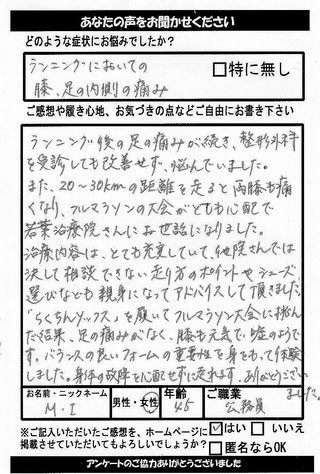 あなたの声をお聞かせください
どのような症状にお悩みでしたか?
ランニングにおいての
膝、足の内側の痛み
□特に無し
ご感想や履き心地、お気づきの点などご自由にお書き下さい
ランニング後の足の痛みが続き、整形外科
を受診しても改善せず、悩んでいました。
また、20~30kmの距離を走ると両膝も痛
くなり、フルマラソンの大会がとても心配で
若葉治療院さんにお世話になりました。
治療内容は、とても充実していて、他院さんでは
決して相談できない走り方のポイントやシューズ
選びなども親身になってアドバイスして頂きました。
「らくちんソックス」を履いてフルマラソン大会に挑ん
だ結果、足の痛みがなく、膝も元気で嘘のようで
す。バランスの良いフォームの重要性を身をもって体験
しました。身体の故障を心配せずに走れます。ありがとうござい
ました。
お名前・ニックネーム
M・I
男性・女性
年齢
45
ご職業
公務員
※ご記入いただいたご感想を、ホームページに
掲載させていただいてもよろしいでしょうか?
☑はい □いいえ
□匿名ならOK
アンケートのご協力ありがとうございました